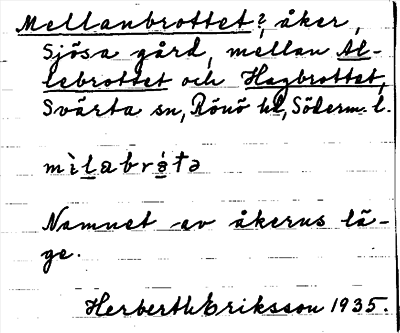 Mellanbrottet?, åker,
Sjösa gård, mellan Al-
lebrottet och Hagbrottet,
Svärta sn, Rönö hd, Söderm. l.
mìlabrɷ́tə
Namnet av åkerns lä-
ge.
Herberth Eriksson 1935.